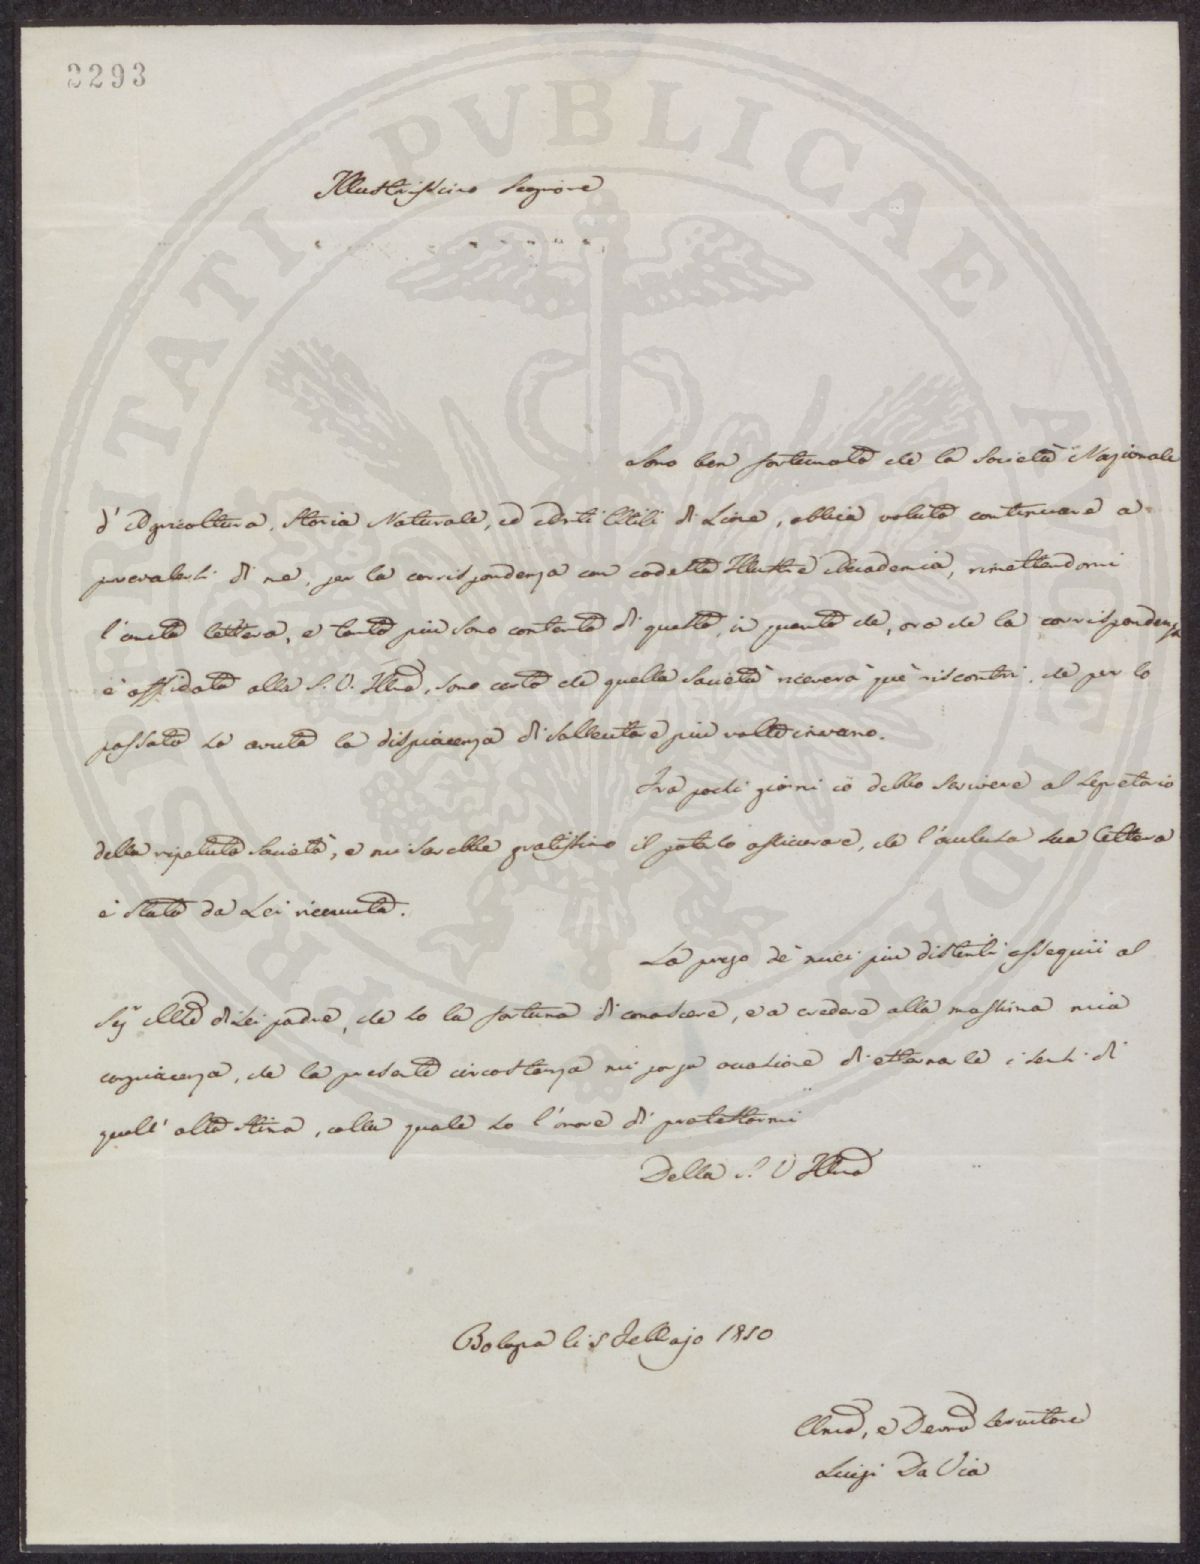 2293
PROSPERITATI PVBLICAE AVGENDAE
Illustrissimo Signore
Sono ben fortunato che la Società Nazionale
d'Agricoltura, Storia Naturale, ed Arti Utili di Lione, abbia voluto continuare a
prevalersi di me, per la corrispondenza con codesta Illustre Accademia, rimettendomi
l'unita lettera, e tanto più sono contento di questo, in quanto che, ora che la corrispondenza
è affidata alla S. V. Illma, sono certo che quella Società riceverà que' riscontri, che per lo
passato ho avuto la dispiacenza di sollecitare più volte invano.
Fra pochi giorni io debbo scrivere al Segretario
della ripetuta Società, e mi sarebbe gratissimo il poterlo assicurare, che l'acclusa sua lettera
è stata da Lei ricevuta.
La prego de' miei più distinti ossequii al
Sigr di Lei padre, che ho la fortuna di conoscere, e a credere alla massima mia
compiacenza, che la presente circostanza mi porga occasione di esternarle i sensi di
quell'alta stima, colla quale ho l'onore di protestarmi
Della S. V. Illma
Bologna li 5 Febbrajo 1850
Umo, e Devmo Servitore
Luigi Da Via